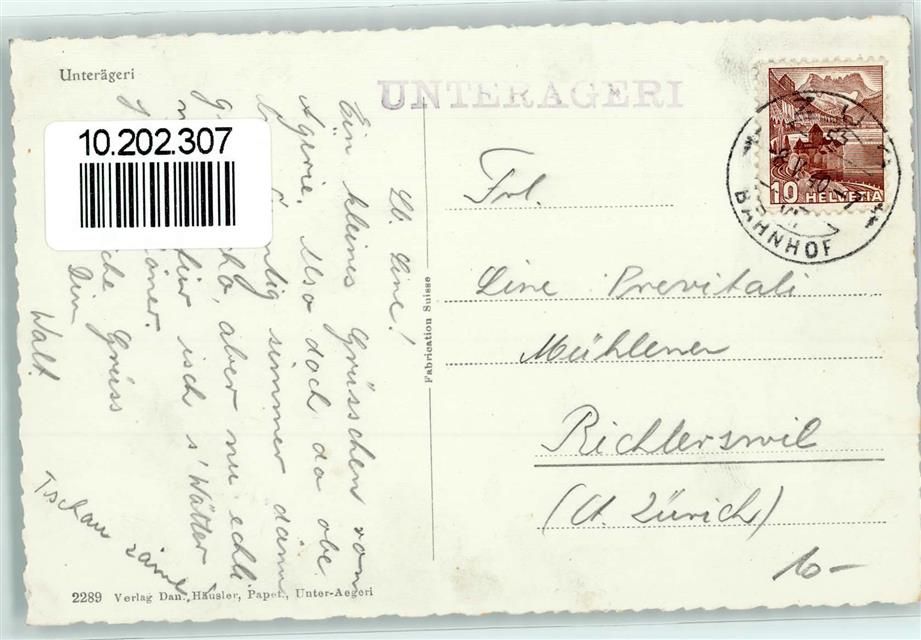 Unterägeri
UNTERÄGERI
10.202.307
10 HELVETIA
BAHNHOF
Lb. Line!
Ein kleines Grüsschen vom
Ägeri. Also doch da obe
simmer dänn
aber nu echli
defür isch s'Wätter
schöner.
Grüss
Dim
Walt.
Tschau zäme
Fabrication Suisse
Frl.
Line Previtali
Mühlenen
Richterswil
(Ct. Zürich)
10-
2289 Verlag Dan. Häusler, Papet., Unter-Aegeri